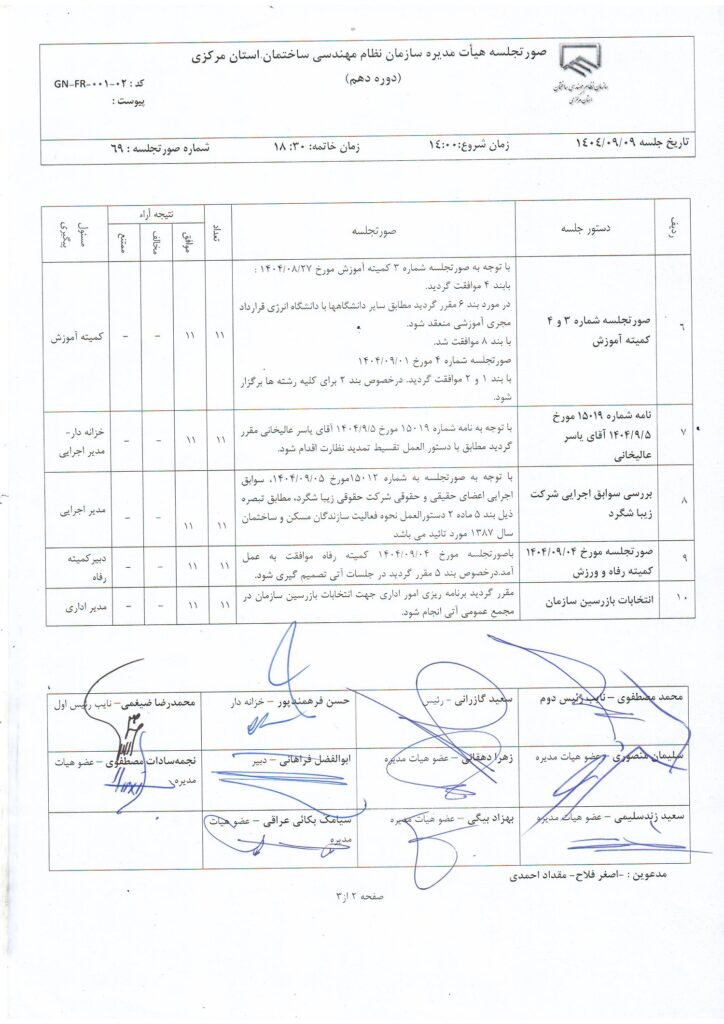 صورتجلسه هیأت مدیره سازمان نظام مهندسی ساختمان استان مرکزی
(دوره دهم)
سازمان نظام مهندسی ساختمان
استان مرکزی
کد : GN-FR-۰۰۱-۰۲
پیوست :
تاریخ جلسه ۱۴۰۴/۰۹/۰۹ زمان شروع:۱۴:۰۰ زمان خاتمه: ۱۸:۳۰ شماره صورتجلسه : ۶۹
ردیف دستور جلسه صورتجلسه تعداد نتیجه آراء مسئول پیگیری
موافق مخالف ممتنع
۶
صورتجلسه شماره ۳ و ۴
کمیته آموزش
با توجه به صورتجلسه شماره ۳ کمیته آموزش مورخ ۱۴۰۴/۰۸/۲۷ :
بابند ۴ موافقت گردید.
در مورد بند ۶ مقرر گردید مطابق سایر دانشگاهها با دانشگاه انرژی قرارداد
مجری آموزشی منعقد شود.
با بند ۸ موافقت شد.
صورتجلسه شماره ۴ مورخ ۱۴۰۴/۰۹/۰۱
با بند ۱ و ۲ موافقت گردید. درخصوص بند ۲ برای کلیه رشته ها برگزار
شود.
۱۱ ۱۱ – – کمیته آموزش
۷
نامه شماره ۱۵۰۱۹ مورخ
۱۴۰۴/۹/۵ آقای یاسر
عالیخانی
با توجه به نامه شماره ۱۵۰۱۹ مورخ ۱۴۰۴/۹/۵ آقای یاسر عالیخانی مقرر
گردید مطابق با دستور العمل تقسیط تمدید نظارت اقدام شود.
۱۱ ۱۱ – –
خزانه دار–
مدیر اجرایی
۸
بررسی سوابق اجرایی شرکت
زیبا شگرد
با توجه به صورتجلسه به شماره ۱۵۰۱۲مورخ ۱۴۰۴/۰۹/۰۵، سوابق
اجرایی اعضای حقیقی و حقوقی شرکت حقوقی زیبا شگرد، مطابق تبصره
ذیل بند ۵ ماده ۲ دستورالعمل نحوه فعالیت سازندگان مسکن و ساختمان
سال ۱۳۸۷ مورد تائید می باشد
۱۱ ۱۱ – – مدیر اجرایی
۹
صورتجلسه مورخ ۱۴۰۴/۰۹/۰۴
کمیته رفاه و ورزش
باصورتجلسه مورخ ۱۴۰۴/۰۹/۰۴ کمیته رفاه موافقت به عمل
آمد.درخصوص بند ۵ مقرر گردید در جلسات آتی تصمیم گیری شود.
۱۱ ۱۱ – –
دبیرکمیته
رفاه
۱۰
انتخابات بازرسین سازمان
مقرر گردید برنامه ریزی امور اداری جهت انتخابات بازرسین سازمان در
مجمع عمومی آتی انجام شود.
۱۱ ۱۱ – – مدیر اداری
محمد مصطفوی – نایب رئیس دوم سعید گازرانی – رئیس حسن فرهمندپور – خزانه دار محمدرضا ضیغمی – نایب رئیس اول
سلیمان منصوری – عضو هیات مدیره زهرا دهقانی – عضو هیات مدیره ابوالفضل فراهانی – دبیر نجمه‌سادات مصطفوی – عضو هیات
مدیره
سعید زندسلیمی – عضو هیات مدیره بهزاد بیگی – عضو هیات مدیره سیامک بکائی عراقی – عضو هیات
مدیره
مدعوین : –اصغر فلاح– مقداد احمدی
صفحه ۲ از۳